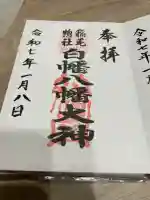 奉拝
稲毛
惣社
白幡八幡大神
令和七年一月八日
令和七年一